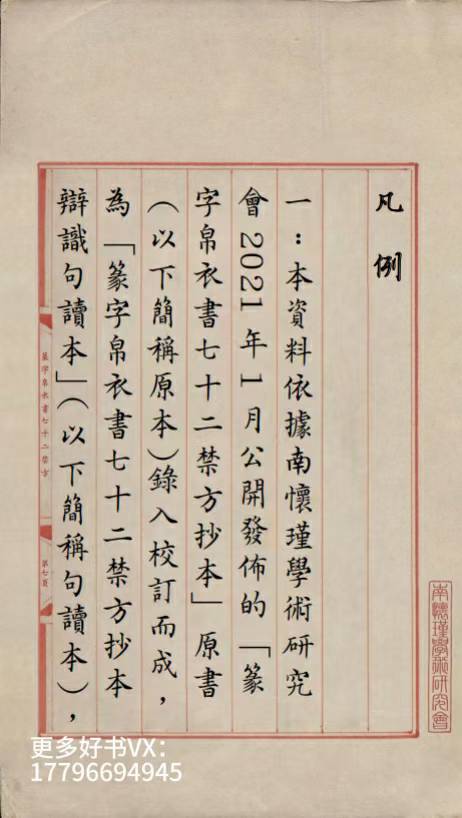 凡例
一：本資料依據南懷瑾學術研究
會2021年1月公開發佈的「篆
字帛衣書七十二禁方抄本」原書
（以下簡稱原本）錄入校訂而成，
為「篆字帛衣書七十二禁方抄本
辯識句讀本」（以下簡稱句讀本），
篆字帛衣書七十二禁方
第七頁
南懷瑾學術研究會
更多好书VX：
17796694945